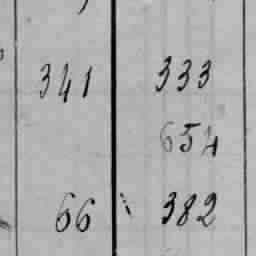 341 333
654
66 382